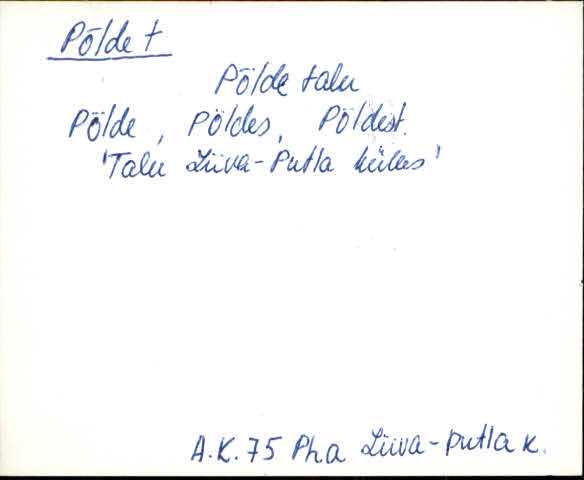 Põlde t
Põlde talu
Põlde, Põldes, Põldest.
'Talu Liiva-Putla külas'
A.K. 75 Pha Liiva-putla k.